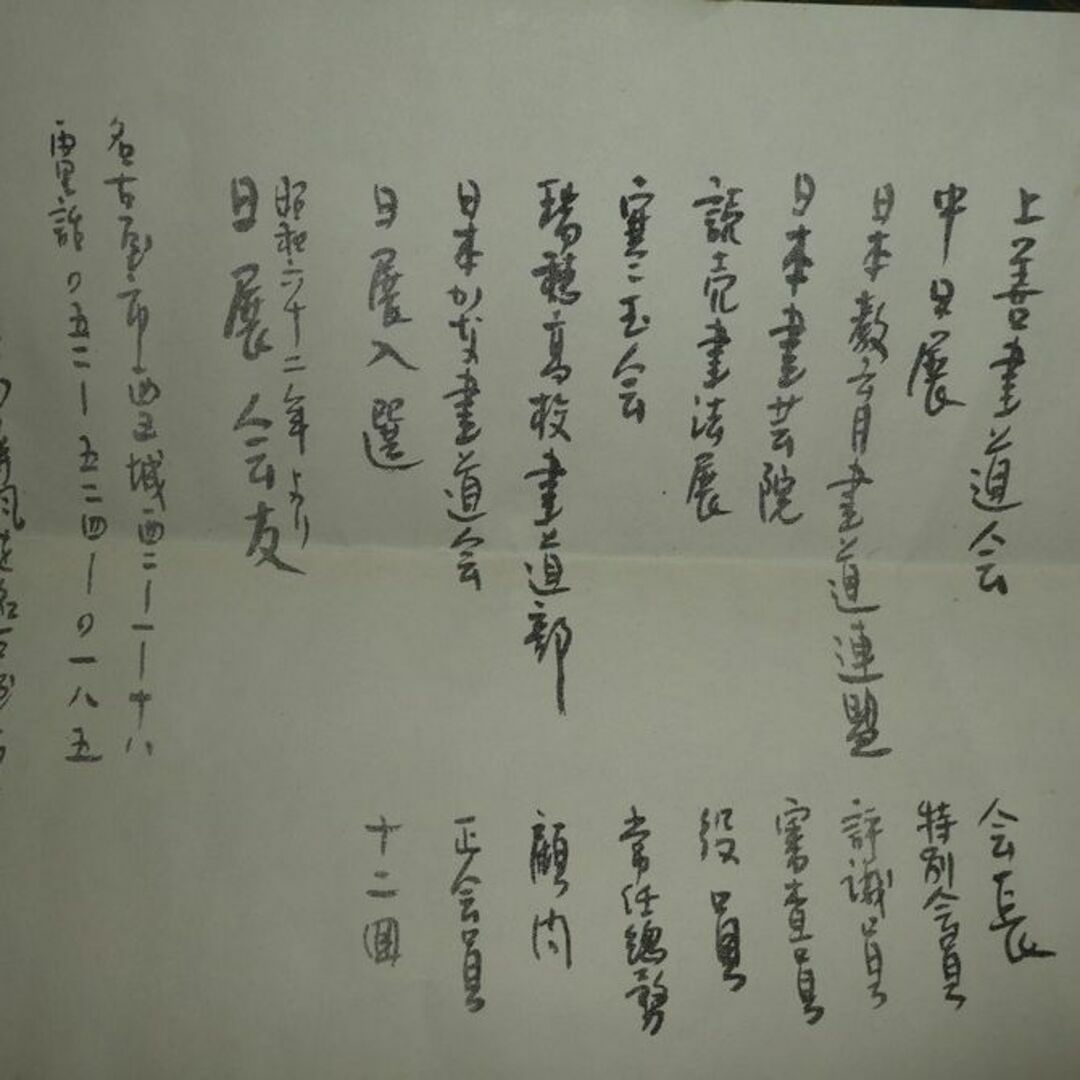 上善書道会 会長
中日展 特別会員
日本教育書道連盟 評議員
日本書芸院 審査員
読売書法展 役員
寒玉会 常任総務
瑞穂高校書道部 顧問
日本かな書道会 正会員
日展入選 十二回
昭和六十二年より
日展会友
名古屋市西区城西二ー一ー十八
電話〇五二ー五二四ー〇一八五